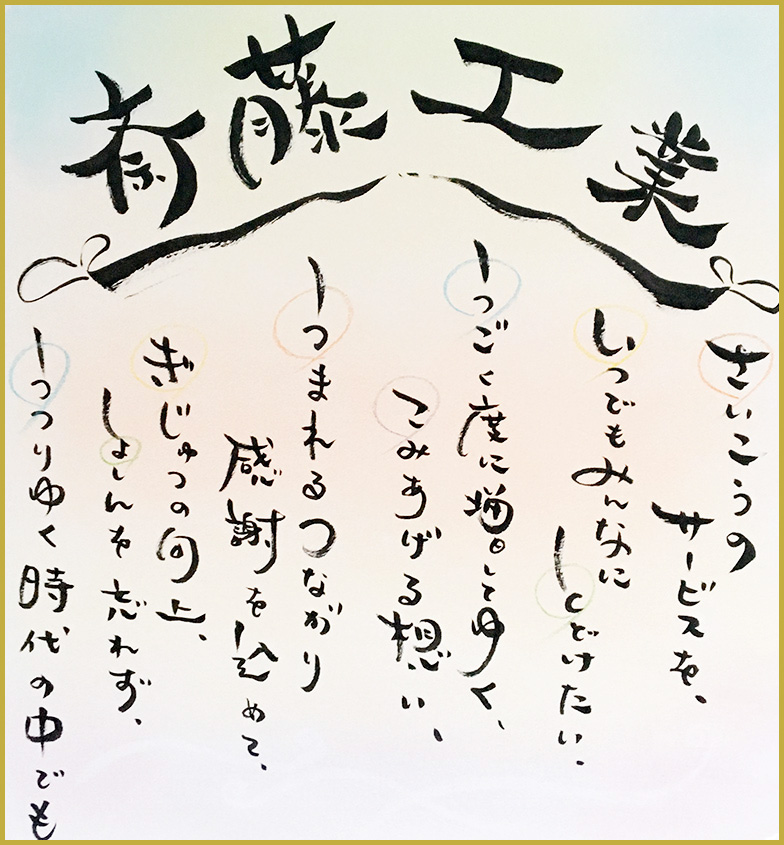 斎藤工業
さいこうの
サービスを、
いつでもみんなに
とどけたい。
うごく度に増してゆく、
こみあげる想い、
うまれるつながり
感謝を込めて、
ぎじゅつの向上、
しょしんを忘れず、
うつりゆく時代の中でも